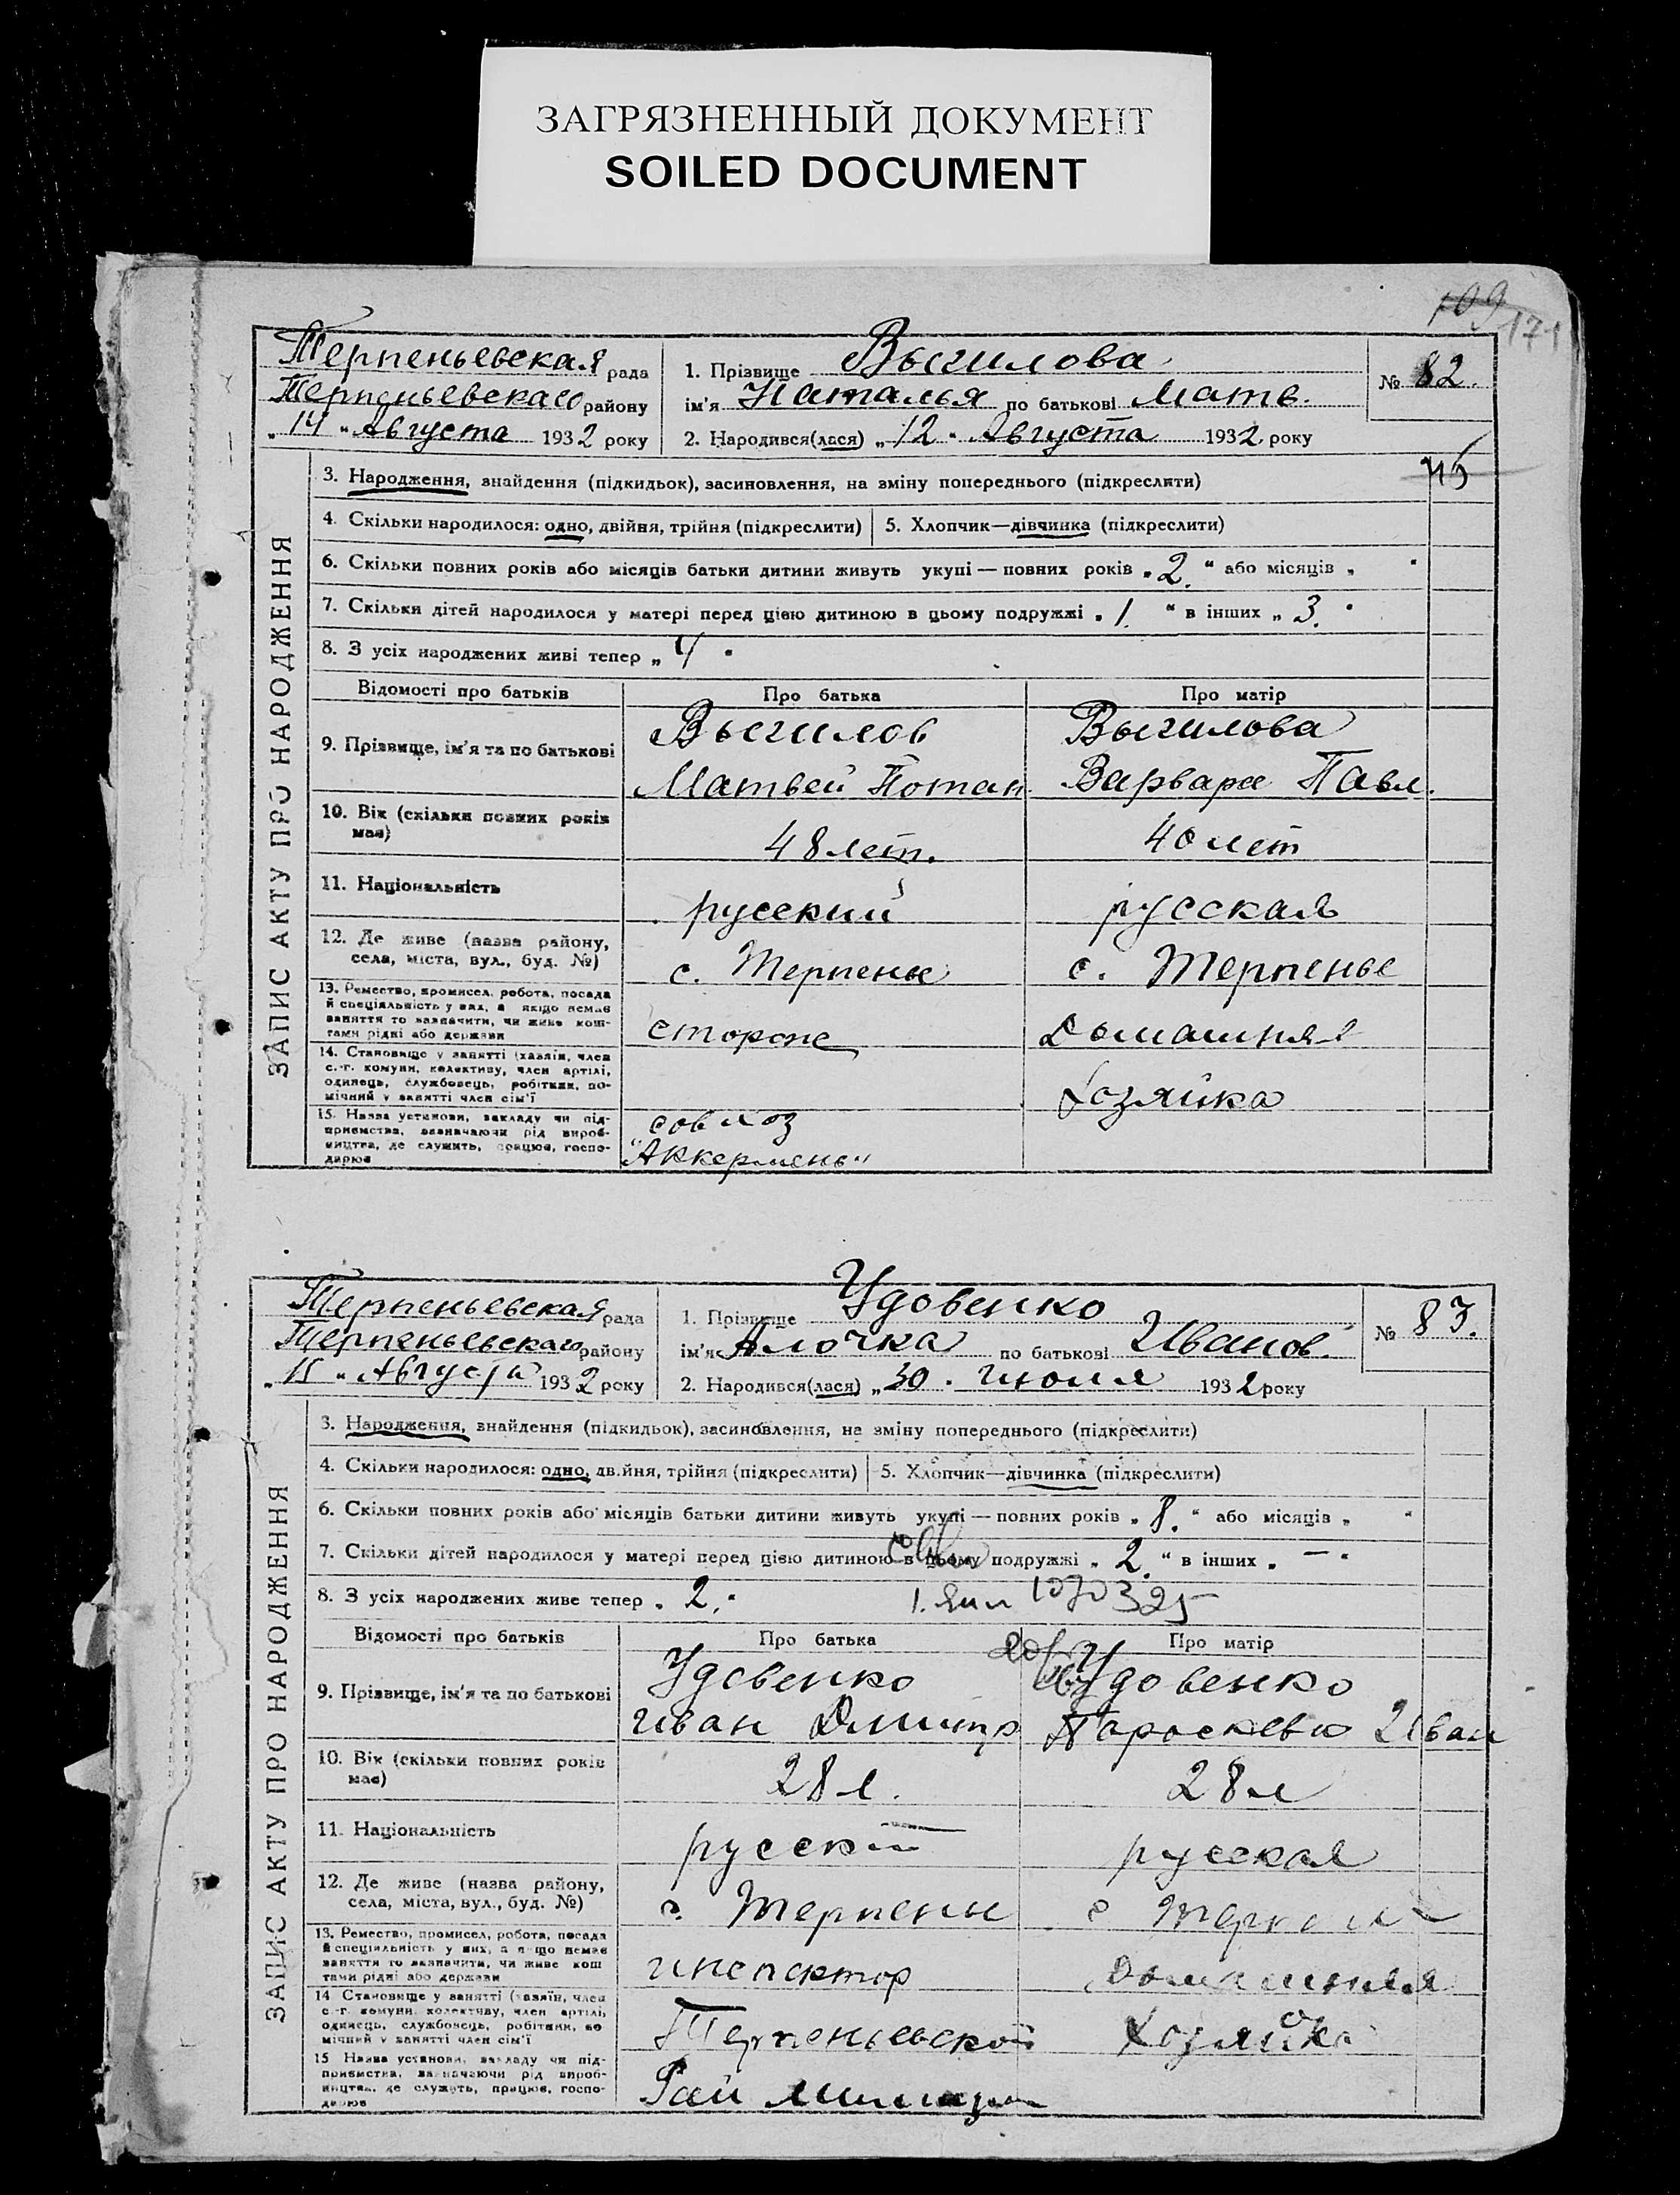 ЗАГРЯЗНЕННЫЙ ДОКУМЕНТ
SOILED DOCUMENT
109 171
ЗАПИС АКТУ ПРО НАРОДЖЕННЯ
Терпеньевская рада
Терпеньевскаго району
„14“ Августа 1932 року
1. Прізвище Вычилова
ім'я Наталья по батькові Матв.
2. Народився(лася) „12“ Августа 1932 року
№ 82.
3. Народження, знайдення (підкидьок), засиновлення, на зміну попереднього (підкреслити)
4. Скільки народилося: одно, двійня, трійня (підкреслити) 5. Хлопчик—дівчинка (підкреслити)
6. Скільки повних років або місяців батьки дитини живуть укупі — повних років „2.“ або місяців „ “
7. Скільки дітей народилося у матері перед цією дитиною в цьому подружжі „1.“ в інших „3.“
8. З усіх народжених живі тепер „4“
Відомості про батьків Про батька Про матір
9. Прізвище, ім'я та по батькові
Вычилов
Матвей Потап.
Вычилова
Варвара Павл.
10. Вік (скільки повних років має)
48 лет.
40 лет
11. Національність
русский
русская
12. Де живе (назва району, села, міста, вул., буд. №)
с. Терпенье
с. Терпенье
13. Ремество, промисел, робота, посада й спеціяльність у них, а якщо немає заняття то зазначити, чи живе коштами рідні або держави
сторож
Домашняя
14. Становище у занятті (хазяїн, член с.-г. комуни, колективу, член артілі, одинець, службовець, робітник, помічний у занятті член сім'ї
Хозяйка
15. Назва установи, закладу чи підприємства, зазначаючи рід виробництва, де служить, працює, господарює
совхоз
"Аккермень"
ЗАПИС АКТУ ПРО НАРОДЖЕННЯ
Терпеньевская рада
Терпеньевскаго району
„15“ Августа 1932 року
1. Прізвище Удовенко
ім'я Алочка по батькові Иванов.
2. Народився(лася) „30“ Июля 1932 року
№ 83.
3. Народження, знайдення (підкидьок), засиновлення, на зміну попереднього (підкреслити)
4. Скільки народилося: одно, двійня, трійня (підкреслити) 5. Хлопчик—дівчинка (підкреслити)
6. Скільки повних років або місяців батьки дитини живуть укупі — повних років „8.“ або місяців „ “
7. Скільки дітей народилося у матері перед цією дитиною в цьому подружжі „2.“ в інших „—“
8. З усіх народжених живе тепер „2.“
Відомості про батьків Про батька Про матір
9. Прізвище, ім'я та по батькові
Удовенко
Иван Дмитр
Удовенко
Параскева Иван
10. Вік (скільки повних років має)
28 л.
28 л
11. Національність
русский
русская
12. Де живе (назва району, села, міста, вул., буд. №)
с. Терпенье
с Терпенье
13. Ремество, промисел, робота, посада й спеціяльність у них, а якщо немає заняття то зазначити, чи живе коштами рідні або держави
инспектор
Домашняя
14 Становище у занятті (хазяїн, член с.-г. комуни, колективу, член артілі, одинець, службовець, робітник, помічний у занятті член сім'ї
Терпеньевской
Хозяйка
15 Назва установи, закладу чи підприємства, зазначаючи рід виробництва, де служить, працює, господарює
Рай милиции